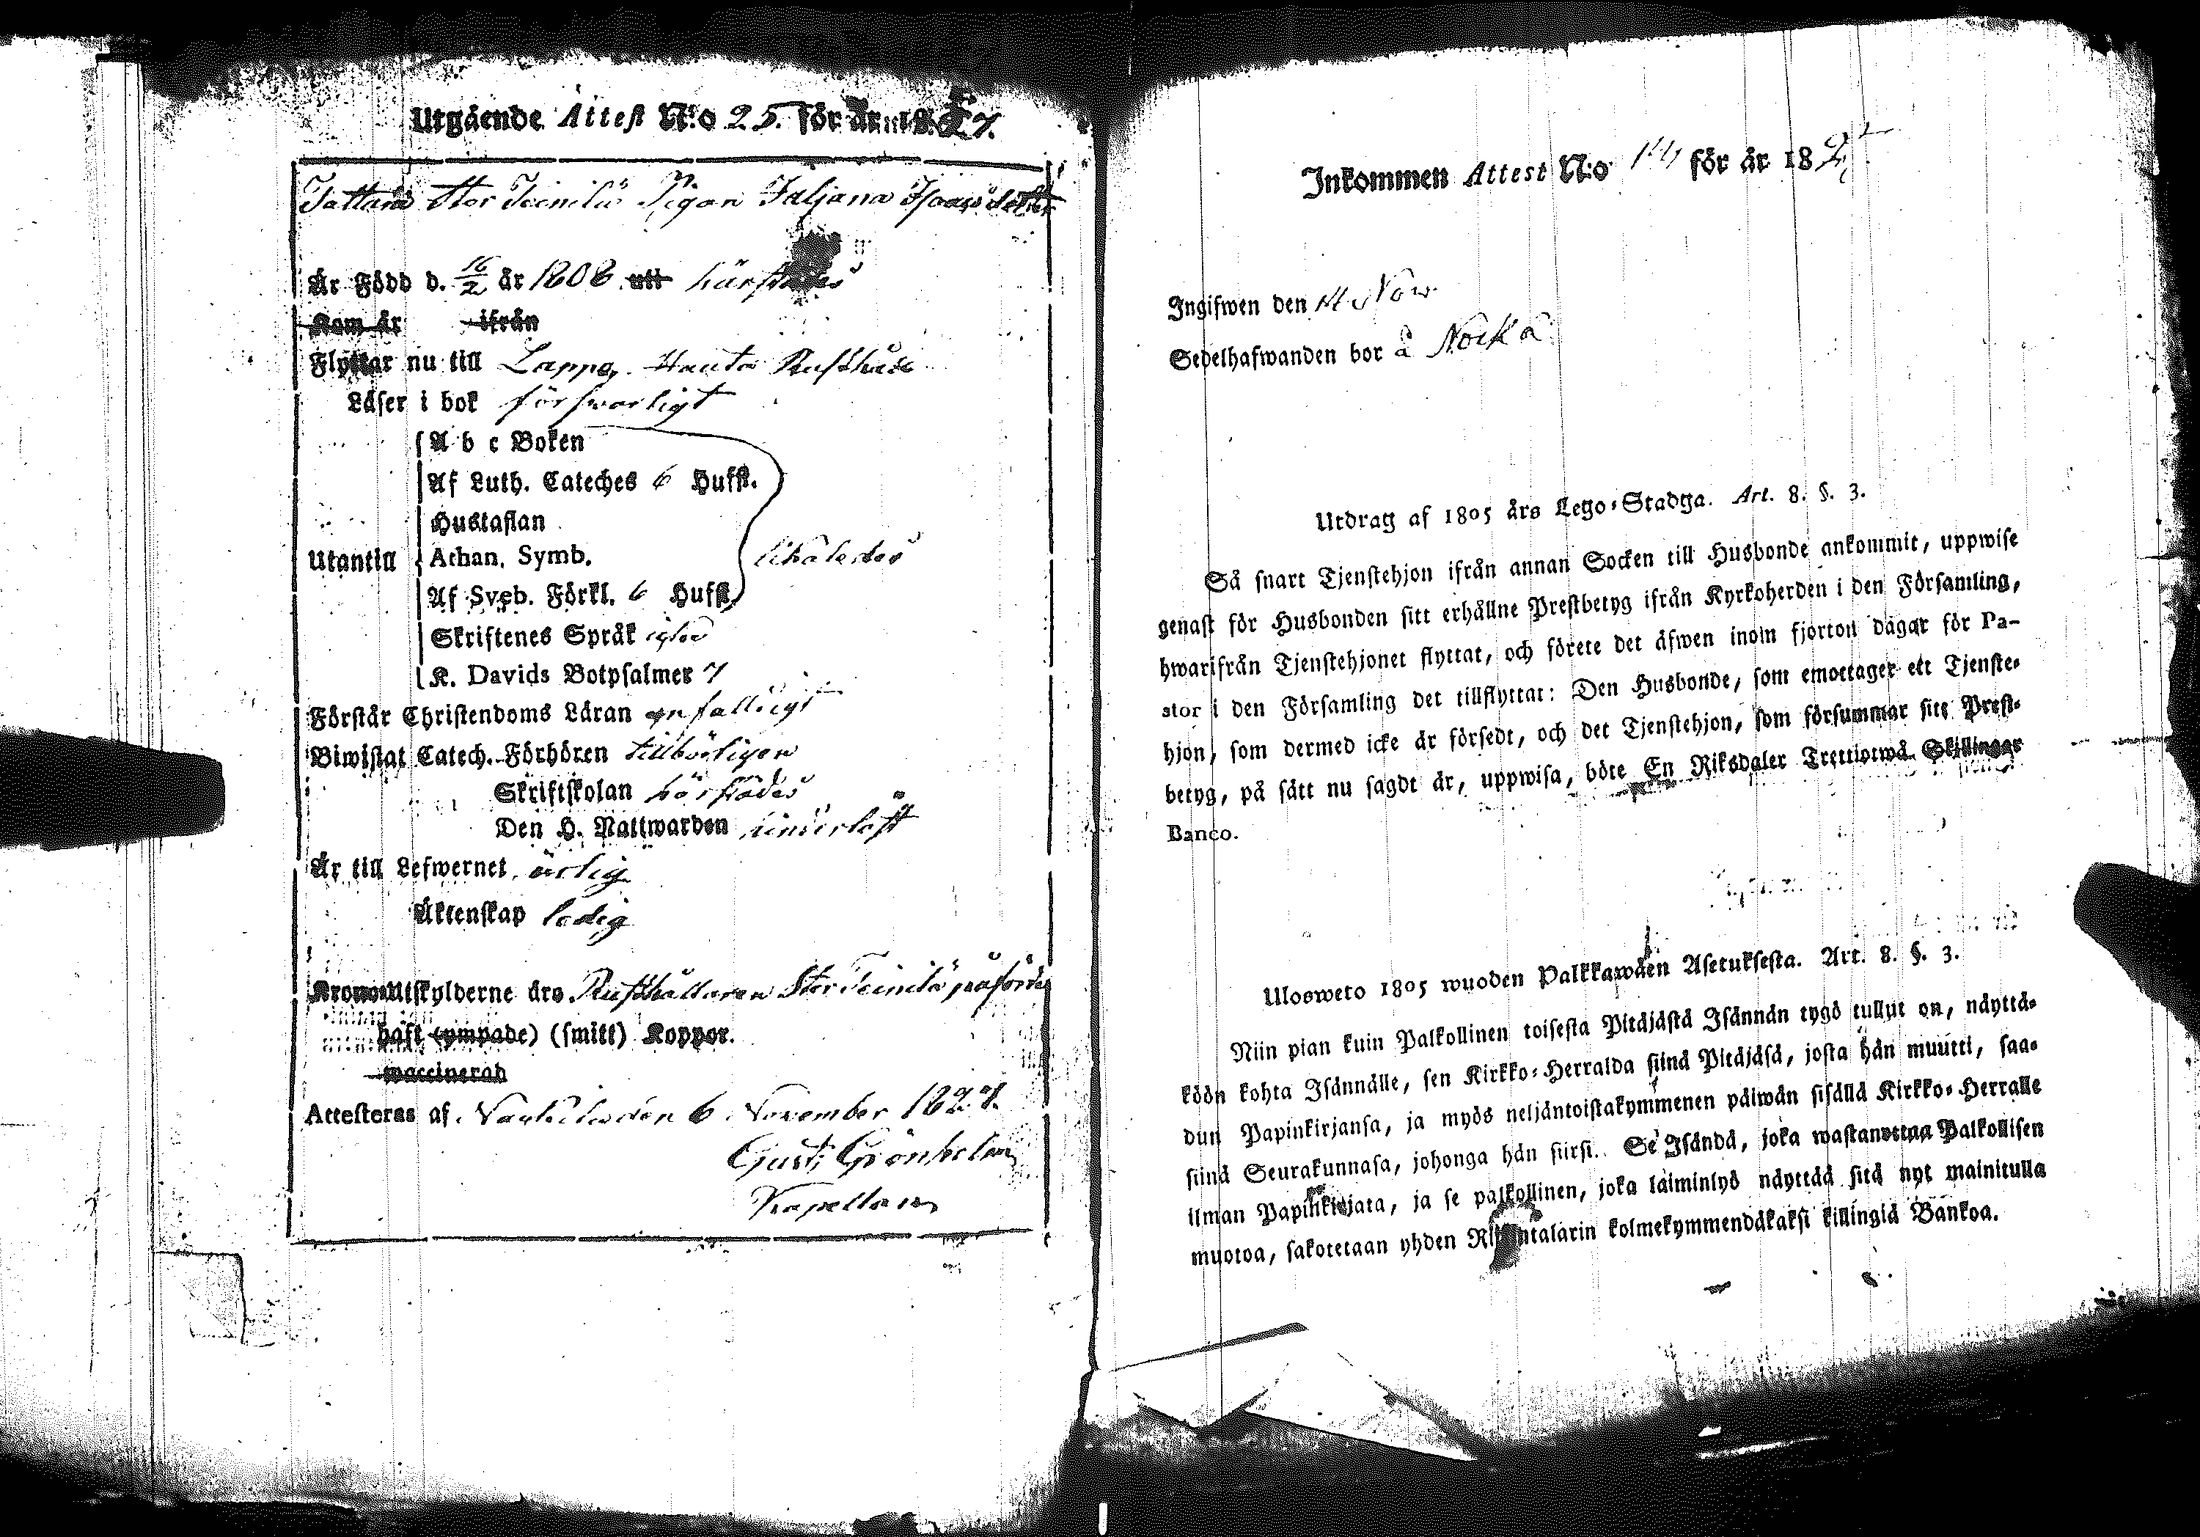 Utgående Attest N:o 25. för år 1827.
Stor Teinilä Pigan Isaacsdotter
Är Född d. 16/2 år 1808 utt härstädes
Kom år ifrån
Flyttar nu till Lappo, Hauta Rusthåll
Läser i bok förswarligt
A b c Boken
Af Luth. Cateches 6 Hufst.
Hustaflan
Utantill Athan. Symb. likaledes
Af Sveb. Förkl. 6 Hufst.
Skriftenes Språk
K. Davids Botpsalmer 7
Förstår Christendoms Läran enfalligt
Biwistat Catech. Förhören tillbörligen
Skriftskolan härstädes
Den H. Nattwarden
Är till Lefwernet ärlig
Äktenskap ledig
KronoUtskylderne äro Rusthållaren Stor Teinilä påförde
haft (ympade) (smitt) Koppor.
waccinerad
Attesteras af den 6 November 1827.
Gust: Grönholm
Kapellan
Inkommen Attest N:o för år 18
Ingifwen den 14 Nov.
Sedelhafwanden bor å
Utdrag af 1805 års Lego-Stadga. Art. 8. §. 3.
Så snart Tjenstehjon ifrån annan Socken till Husbonde ankommit, uppwise
genast för Husbonden sitt erhållne Prestbetyg ifrån Kyrkoherden i den Församling,
hwarifrån Tjenstehjonet flyttat, och förete det äfwen inom fjorton dagar för Pa-
stor i den Församling det tillflyttat: Den Husbonde, som emottager ett Tjenste-
hjon, som dermed icke är försedt, och det Tjenstehjon, som försummar sitt Prest-
betyg, på sätt nu sagdt är, uppwisa, böte En Riksdaler Trettiotwå Skillingar
Banco.
Ulosweto 1805 wuoden Palkkawäen Asetuksesta. Art. 8. §. 3.
Niin pian kuin Palkollinen toisesta Pitäjästä Isännän tygö tullut on, näyttä-
köön kohta Isännälle, sen Kirkko-Herralda siinä Pitäjäsä, josta hän muutti, saa-
dun Papinkirjansa, ja myös neljäntoistakymmenen päiwän sisällä Kirkko-Herralle
siinä Seurakunnasa, johonga hän siirsi. Se Isändä, joka wastanottaa Palkollisen
ilman Papinkirjata, ja se palkollinen, joka laiminlyö näyttää sitä nyt mainitulla
muotoa, sakotetaan yhden Riksintalarin kolmekymmendäkaksi killingiä Bankoa.